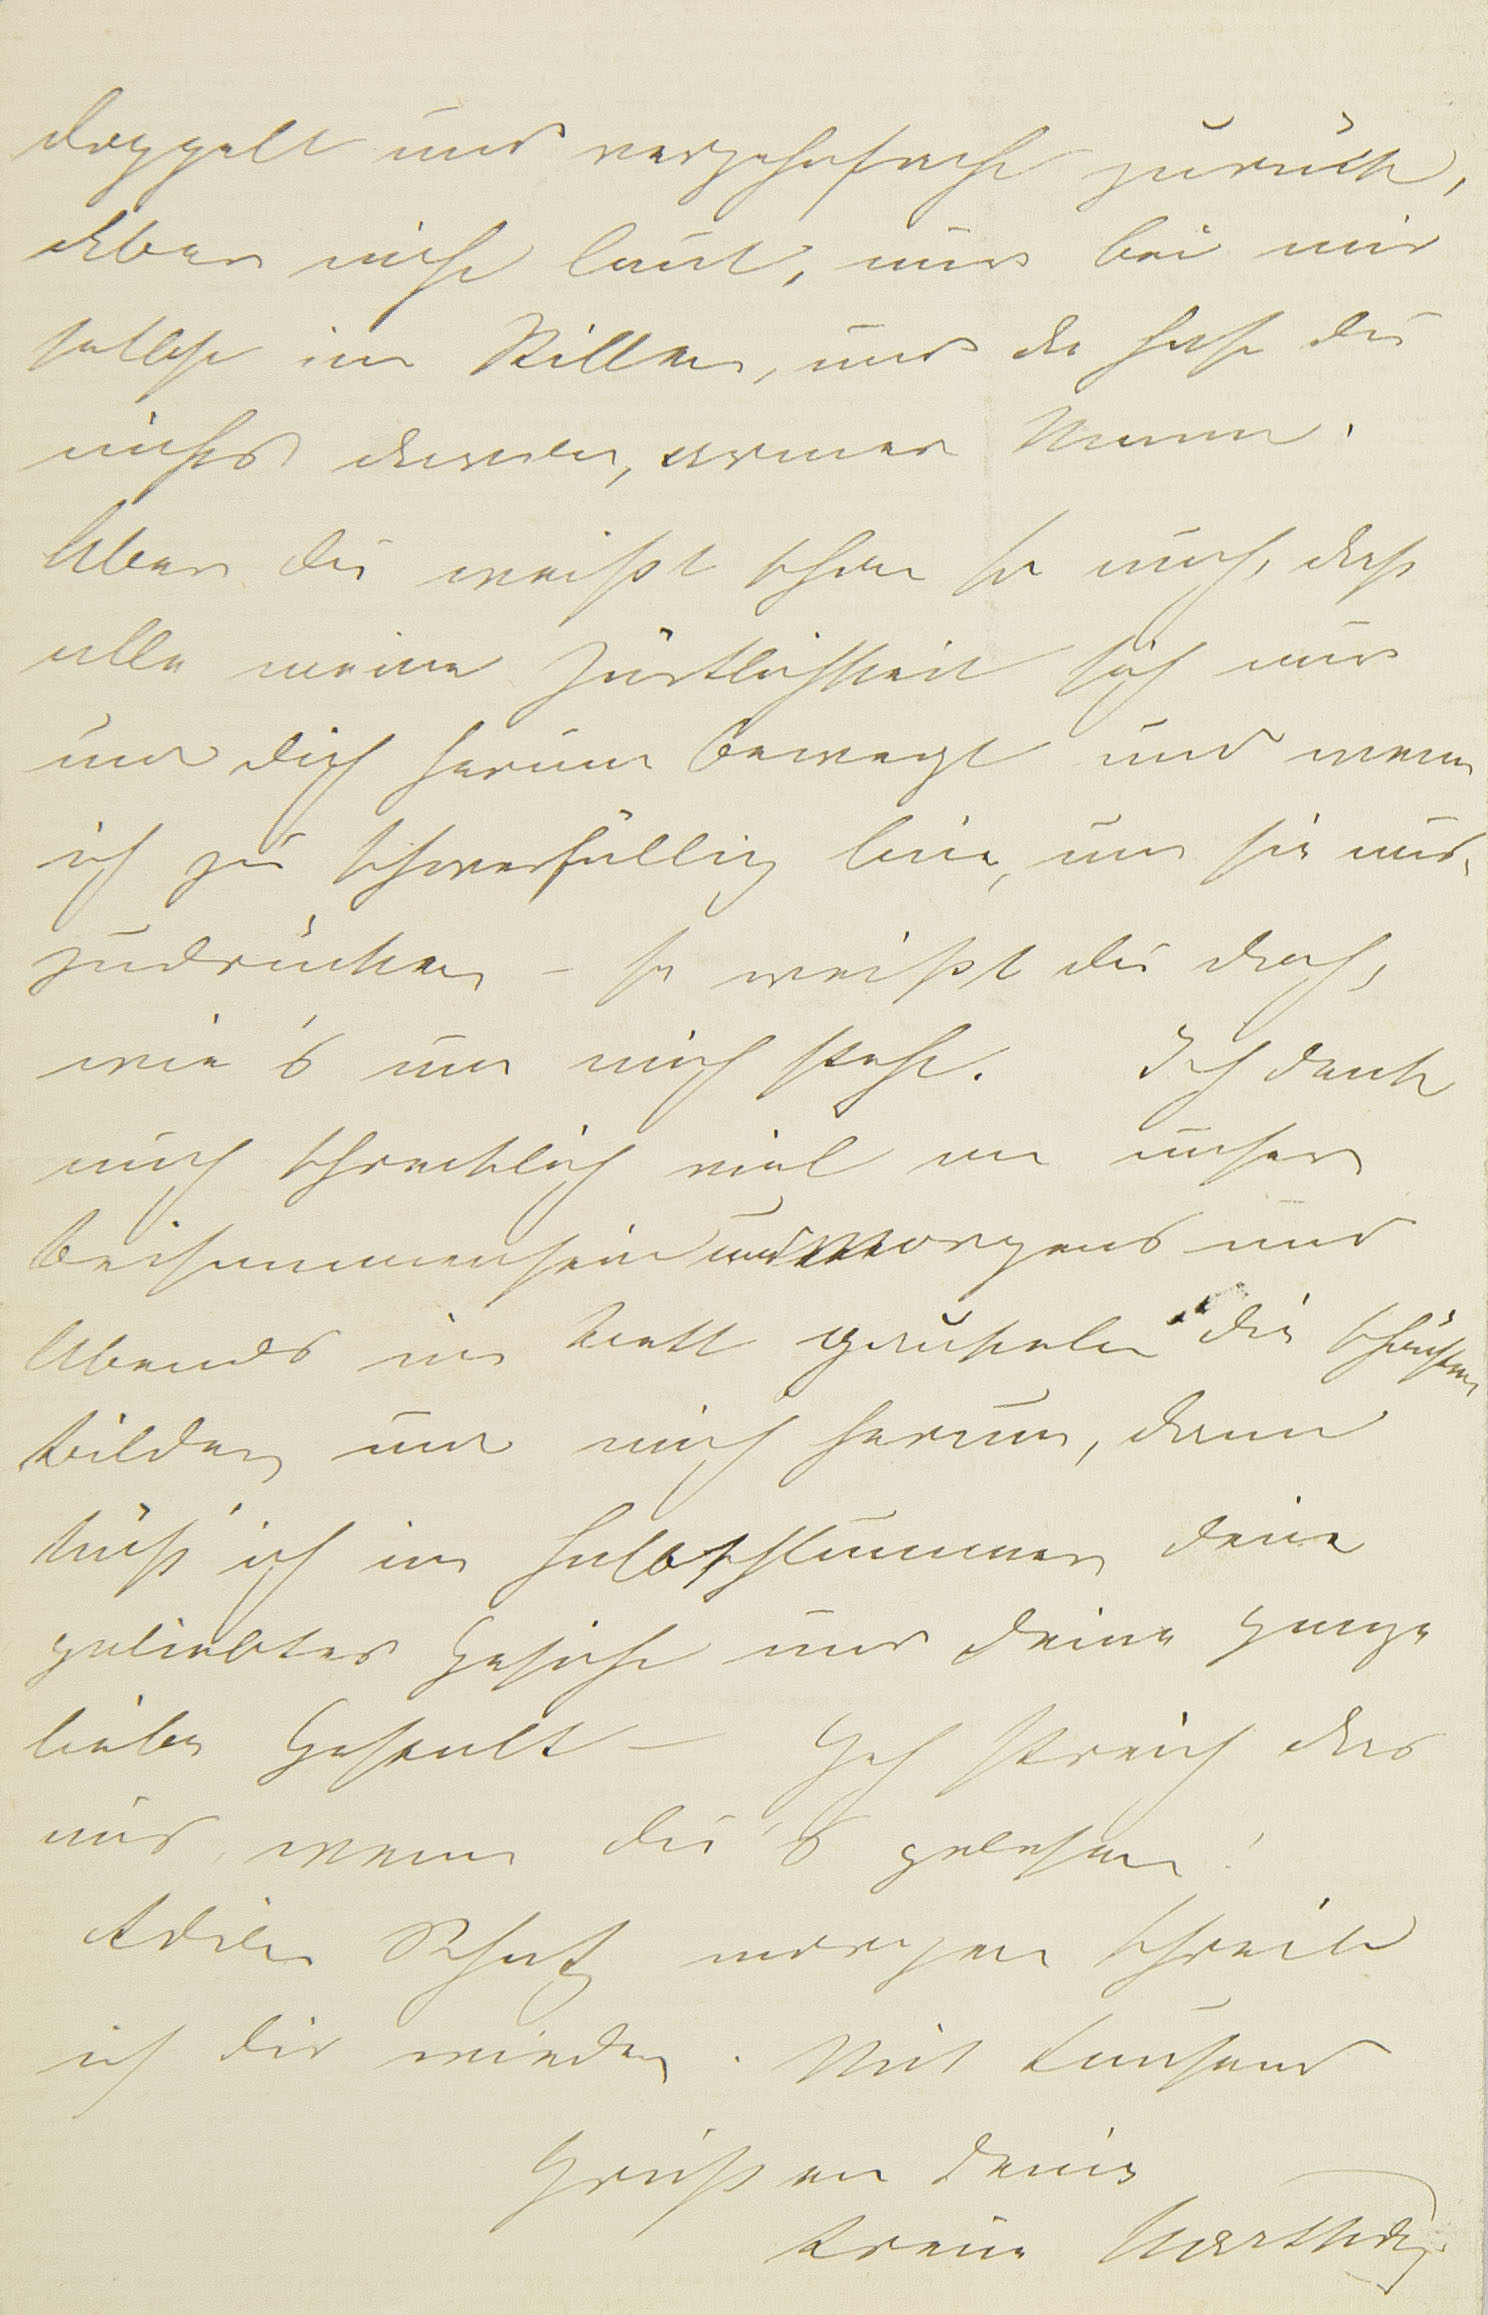 doppelt und verzehnfacht zurück,
aber nicht laut, nur bei mir
selbst im Stillen, und da hast du
nichts davon, armer Mann.
Aber du weißt schon so auch, daß
alle meine Zärtlichkeit sich nur
um dich herum bewegt und wenn
ich zu schwerfällig bin, um sie aus-
zudrücken – so weißt du doch,
wie's um mich steht. Ich denk
auch schrecklich viel an unser
Beisammensein und Morgens und
Abends im Bett gaukeln die schönsten
Bilder um mich herum, dann
küß' ich im Halbschlummer dein
geliebtes Gesicht und deine ganze
liebe Gestalt – Geh streich das
aus, wenn du's gelesen!
Adieu Schatz morgen schreib
ich dir wieder. Mit tausend
Grüßen deine
treue